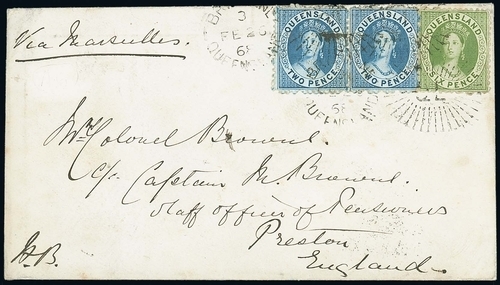 Via Marseilles.
QUEENSLAND QUEENSLAND QUEENSLAND
TWO PENCE TWO PENCE SIX PENCE
FE
68
QUEENSLAND
68
QUEENSLAND
Mrs Colonel Browne
c/o Captain M. Browne.
Staff officer of Pensioners
Preston
England.